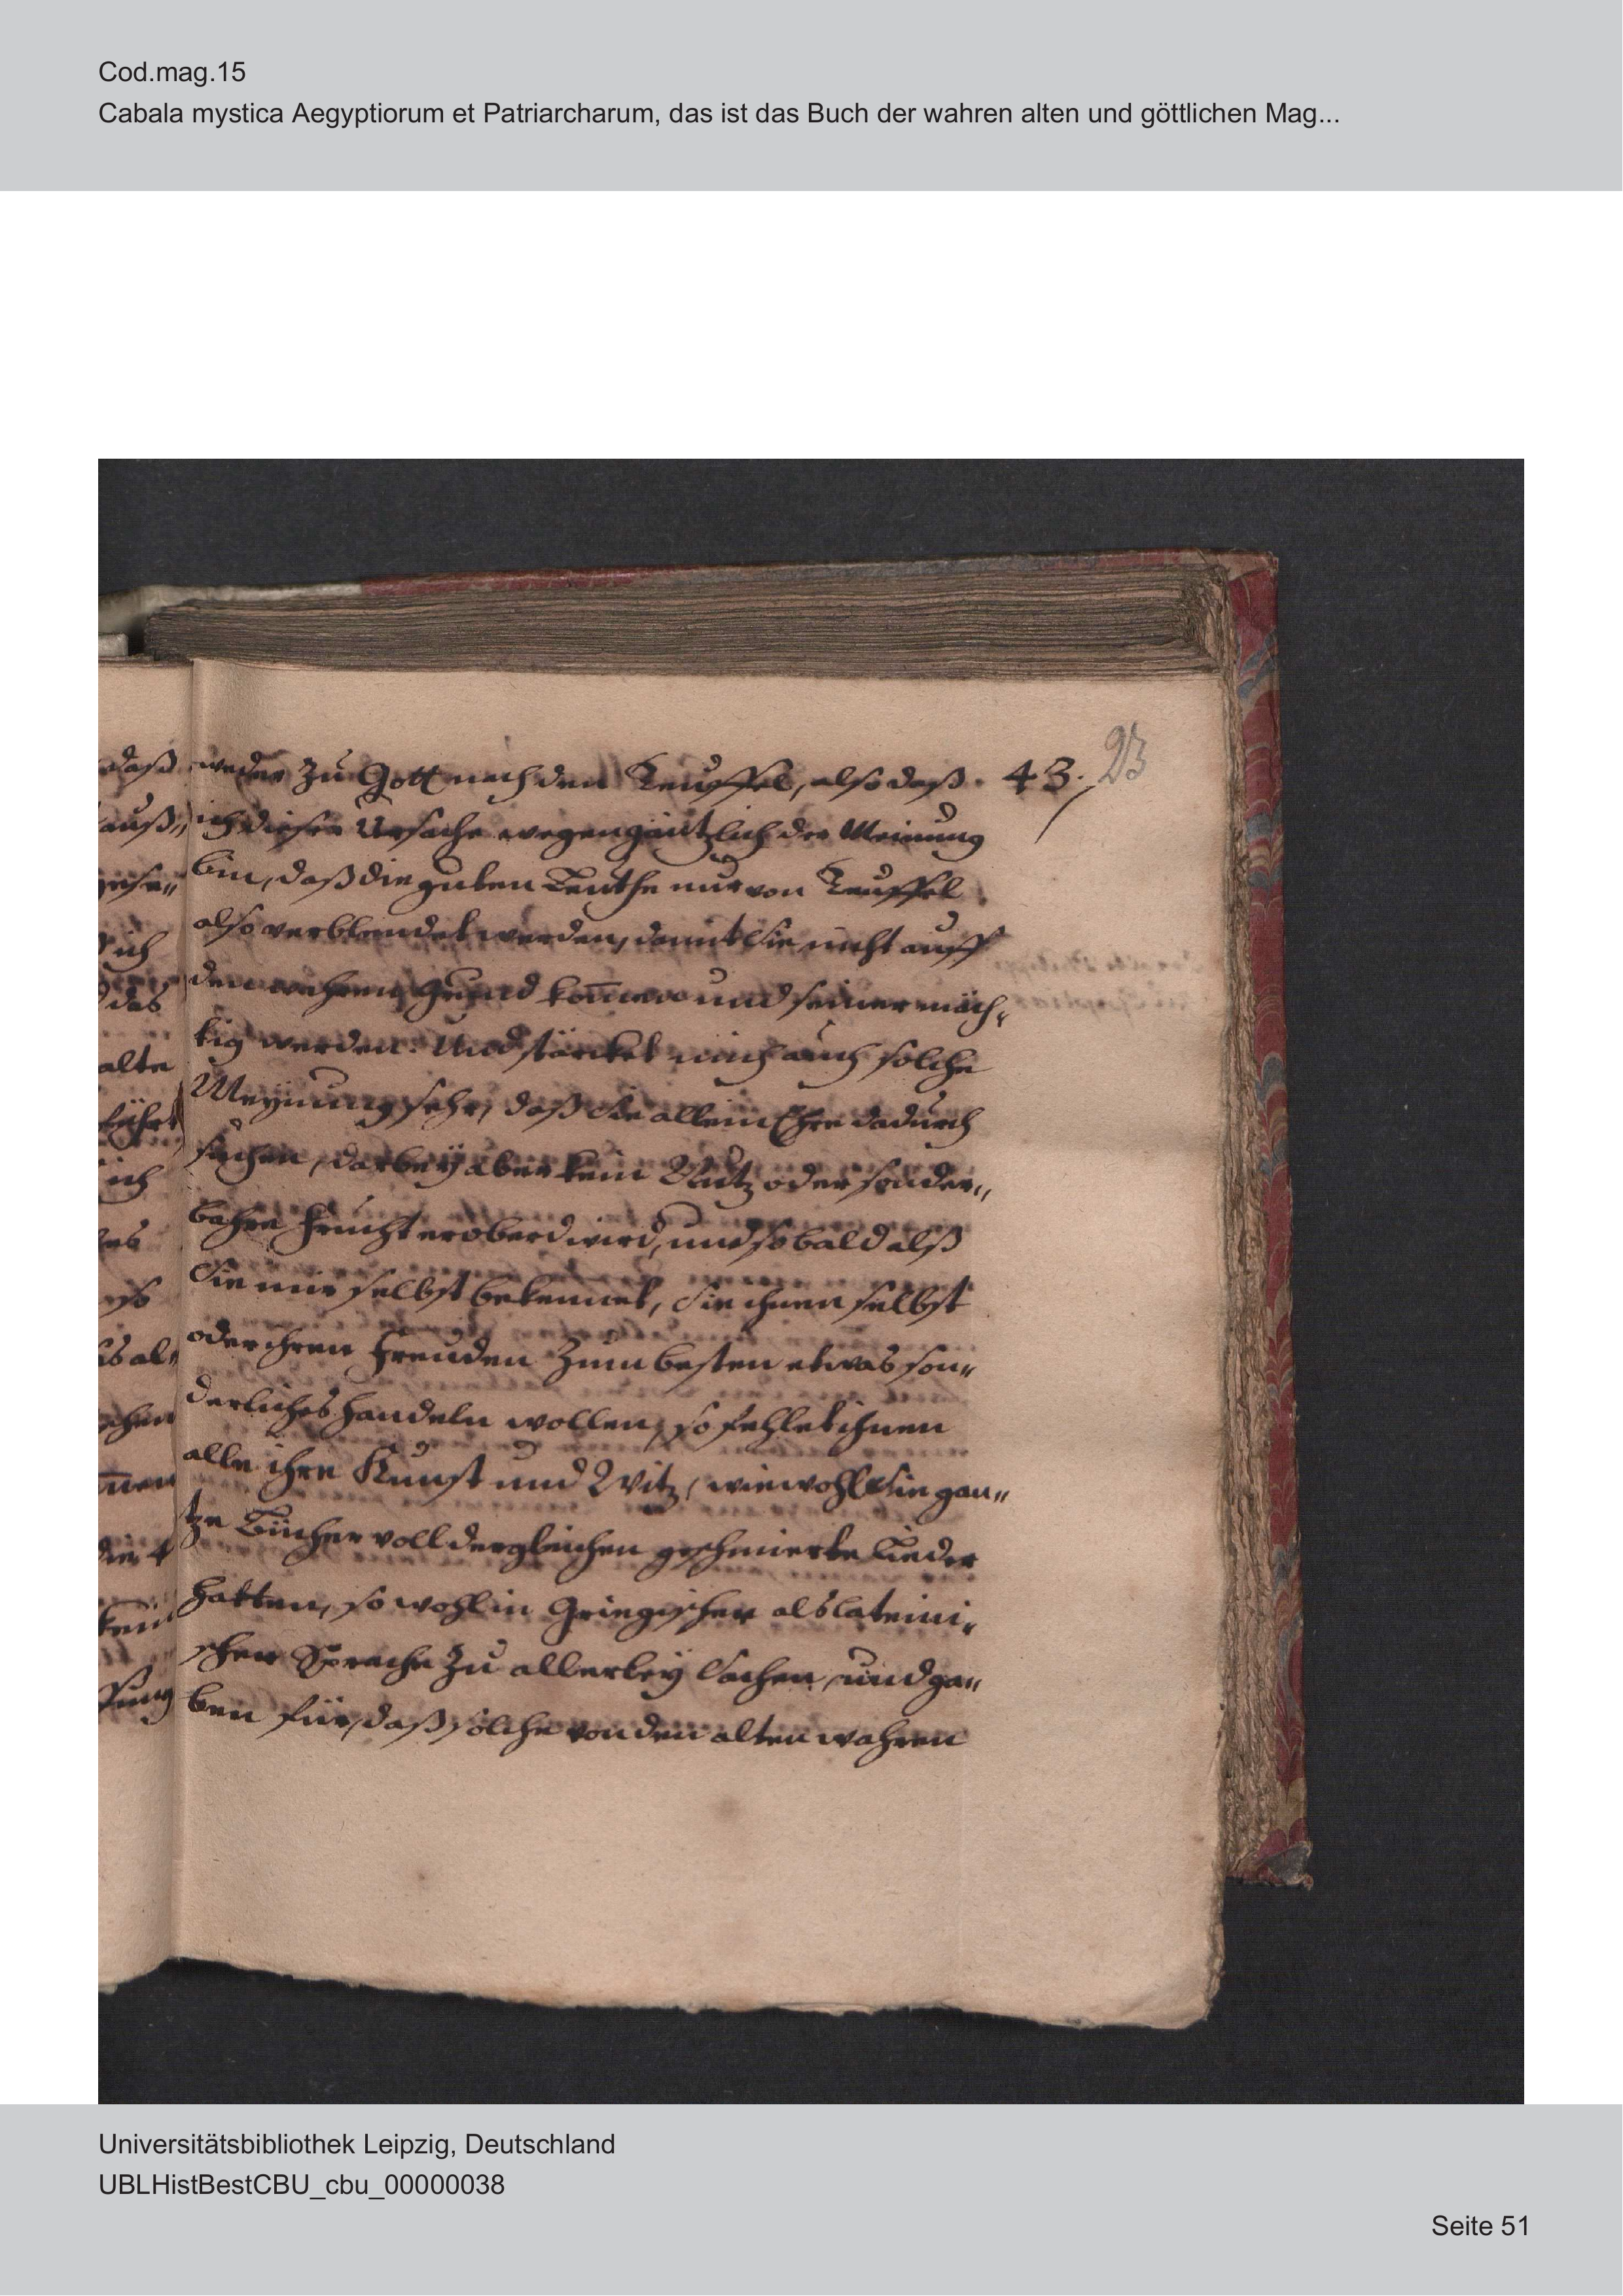 Cod.mag.15
Cabala mystica Aegyptiorum et Patriarcharum, das ist das Buch der wahren alten und göttlichen Mag...
weder zu Gott noch den Teuffel, also daß 43. 23
ich dieser Ursache wegen gäntzlich der Meinung
bin, daß die guten Leuthe nur von Teuffel
also verblendet werden, damit Sie nicht auff
den wahren Grund kom̄en und seiner mäch„
tig werden. Und stärcket mich auch solche
Meynung sehr, daß Sie allein Ehre dadurch
suchen, darbey aber kein Nutz oder sonder„
bahre Frucht eroberd wird, und so bald alß
Sie mir selbst bekennet, Sie ihnen selbst
oder ihren Freuden zum besten etwas son„
derliches handeln wollen, so fehlet ihnen
alle ihre Kunst und Witz, wiewohl Sie gan„
tze Bücher voll dergleichen geschmierte Lieder
hatten, so wohl in Griegischer als lateini„
scher Sprache zu allerley Sachen, und ga„
ben für, daß solche von den alten wahren
daß
auß„
gese„
ich
das
alte
führt
ich
so
al„
chen
Universitätsbibliothek Leipzig, Deutschland
UBLHistBestCBU_cbu_00000038
Seite 51